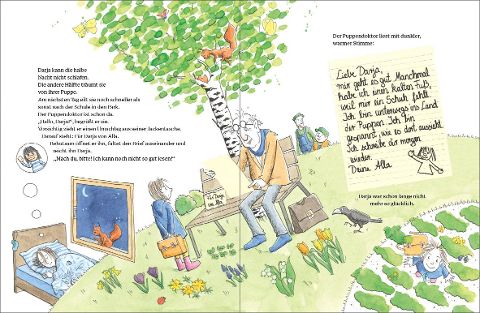 Darja kann die halbe
Nacht nicht schlafen.
Die andere Hälfte träumt sie
von ihrer Puppe.
Am nächsten Tag eilt sie noch schneller als
sonst nach der Schule in den Park.
Der Puppendoktor ist schon da.
„Hallo, Darja!“, begrüßt er sie.
Vorsichtig zieht er einen Umschlag aus seiner Jackentasche.
Darauf steht: Für Darja von Alla.
Behutsam öffnet er ihn, faltet den Brief auseinander und
reicht ihn Darja.
„Nach du, bitte! Ich kann noch nicht so gut lesen!“
Der Puppendoktor liest mit dunkler,
warmer Stimme:
Liebe Darja,
mir geht es gut. Manchmal
habe ich einen kalten Fuß,
weil mir ein Schuh fehlt.
Ich bin unterwegs ins Land
der Puppen. Ich bin
gespannt, wie es dort aussieht.
Ich schreibe dir morgen
wieder.
Deine Alla
Für
Darja
von
Alla
Darja war schon lange nicht
mehr so glücklich.